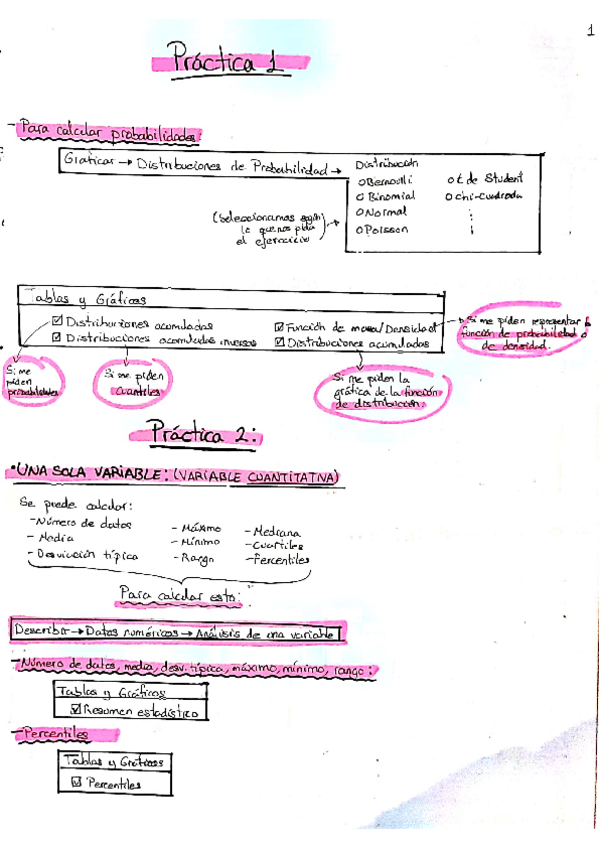 1
Práctica 1
- Para calcular probabilidades:
Graficar → Distribuciones de Probabilidad →
Distribución
o Bernoulli
o t de Student
o Binomial
o chi-cuadrado
o Normal
o Poisson
(Seleccionamos según
lo que nos pida
el ejercicio)
Tablas y Gráficos
☑ Distribuciones acumuladas
☑ Función de masa/Densidad
☑ Distribuciones acumuladas inversas
☑ Distribuciones acumuladas
Si me piden representar la
función de probabilidad o
de densidad.
Si me
piden
probabilidades
Si me piden
cuantiles
Si me piden la
gráfica de la función
de distribución.
Práctica 2:
• UNA SOLA VARIABLE: (VARIABLE CUANTITATIVA)
Se puede calcular:
- Número de datos
- Media
- Desviación típica
- Máximo
- Mínimo
- Rango
- Mediana
- Cuartiles
- Percentiles
Para calcular esto:
Describir → Datos numéricos → Análisis de una variable
- Número de datos, media, desv. típica, máximo, mínimo, rango:
Tablas y Gráficos
☑ Resumen estadístico
- Percentiles
Tablas y Gráficos
☑ Percentiles